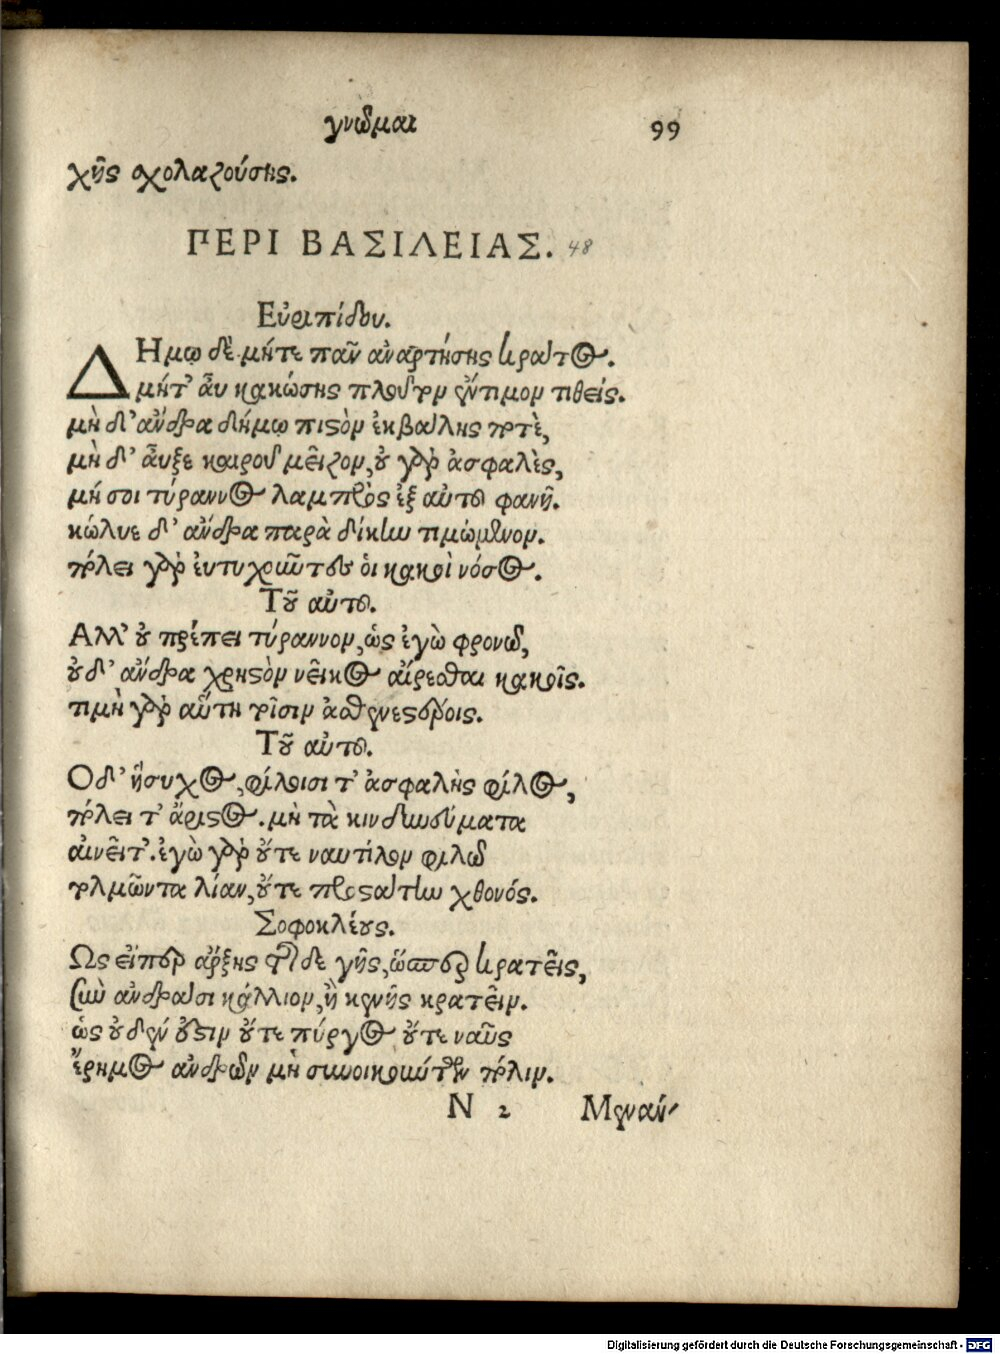 γνῶμαι 99
χῆς σχολαζούσης.
ΠΕΡΙ ΒΑΣΙΛΕΙΑΣ. 48
Εὐριπίδου.
ΔΗμῳ δὲ μήτε πᾶν ἀναρτήσης κράτος.
μήτ' ἂυ κακώσης πλοῦτον ἔντιμον τιθείς.
μὴ δ' ἄνδρα δήμῳ πιστὸν ἐκβάλης ποτὲ,
μὴ δ' ἄυξε καιροῦ μεῖζον, οὐ γὰρ ἀσφαλὲς,
μή σοι τύραννος λαμπρὸς ἐξ αὐτοῦ φανῆ.
κώλυε δ' ἄνδρα παρὰ δίκην τιμώμενον.
πόλει γὰρ ἐυτυχοῦντες ὁι κακοὶ νόσος.
Τοῦ αὐτοῦ.
Αλλ' οὐ πρέπει τύραννον, ὡς ἐγὼ φρονῶ,
οὐδ' ἄνδρα χρηστὸν νεῖκος αἴρεσθαι κακοῖς.
τιμὴ γὰρ αὕτη τοῖσιν ἀσθενεστέροις.
Τοῦ αὐτοῦ.
Οδ' ἥσυχος, φίλοισι τ' ἀσφαλὴς φίλος,
πόλει τ' ἄριστος. μὴ τὰ κινδυνεύματα
αἰνεῖτ'. ἐγὼ γὰρ οὔτε ναυτίλον φιλῶ
τολμῶντα λίαν, οὔτε προστάτην χθονός.
Σοφοκλέους.
Ως εἴπερ ἄρξης τῆσδε γῆς, ὥσπερ κρατεῖς,
ξὺν ἀνδράσι κάλλιον, ἢ κενῆς κρατεῖν.
ὡς οὐδέν οὖστιν οὔτε πύργος οὔτε ναῦς
ἔρημος ἀνδρῶν μὴ συνοικούντων πόλιν.
N 2 Μεναν-
Digitalisierung gefördert durch die Deutsche Forschungsgemeinschaft - DFG